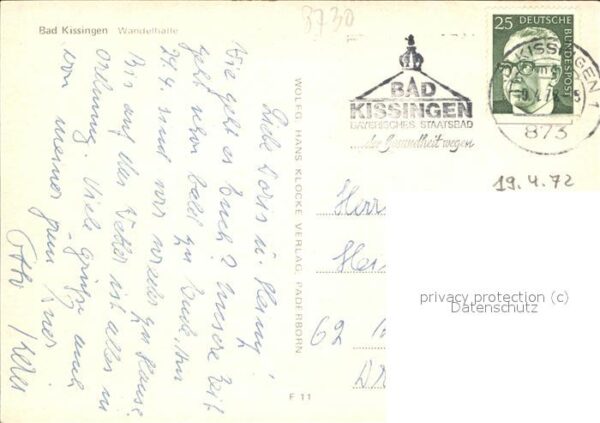 8730
Bad Kissingen Wandelhalle
25 DEUTSCHE BUNDESPOST
BAD KISSINGEN 1
873
BAD
KISSINGEN
BAYERISCHES STAATSBAD
...der Gesundheit wegen
19.4.72
Liebe Doris u.
Wie geht es Euch? Unsere Zeit
geht schon bald zu Ende. Am
24.4. sind wir wieder zu Hause.
Bis auf das Wetter ist alles in
Ordnung. Viele Grüße auch
von meiner
Otto
WOLFG. HANS KLOCKE VERLAG, PADERBORN
F 11
Herr
62
privacy protection (c)
Datenschutz